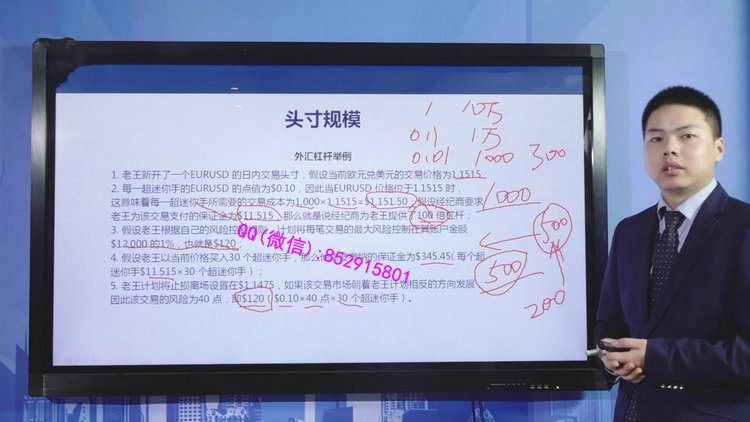 头寸规模
外汇杠杆举例
1. 老王新开了一个EURUSD 的日内交易头寸，假设当前欧元兑美元的交易价格为1.1515；
2. 每一超迷你手的EURUSD 的点值为$0.10，因此当EURUSD 价格位于1.1515 时，
这意味着每一超迷你手所需要的交易成本为1,000×1.1515=$1,151.50，假设经纪商要求
老王为该交易支付的保证金为$11.515，那么就是说经纪商为老王提供了100 倍杠杆；
3. 假设老王根据自己的风险控制 计划将每笔交易的最大风险控制在其账户金额
$12,000 的1%，也就是$120
4. 假设老王以当前价格买入30 个超迷你手，那么 的保证金为$345.45( 每个超
迷你手$11.515×30 个超迷你手)；
5. 老王计划将止损离场设置在$1.1475，如果该交易市场朝着老王计划相反的方向发展
因此该交易的风险为40 点，即$120 ( $0.10×40 点×30 个超迷你手)。
1 10万
0.1 1万
0.01 1000 300
1000
500
500
200
QQ(微信):852915801